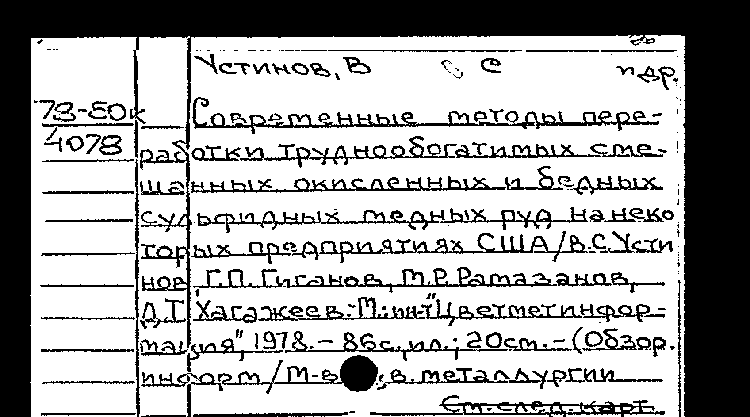 Устинов, В С
и др.
78-80к
4078
Современные методы пере-
работки труднообогатимых сме-
шанных окисленных и бедных
сульфидных медных руд на неко
торых предприятиях США / В.С. Усти
нов, Г.П. Гиганов, М.Р. Рамазанов,
Д.Т. Хагажеев.-М.: ин-т "Цветметинфор-
мация", 1978.- 86с., ил.; 20см.- (Обзор.
информ / М-в цв. металлургии
См. след. карт.